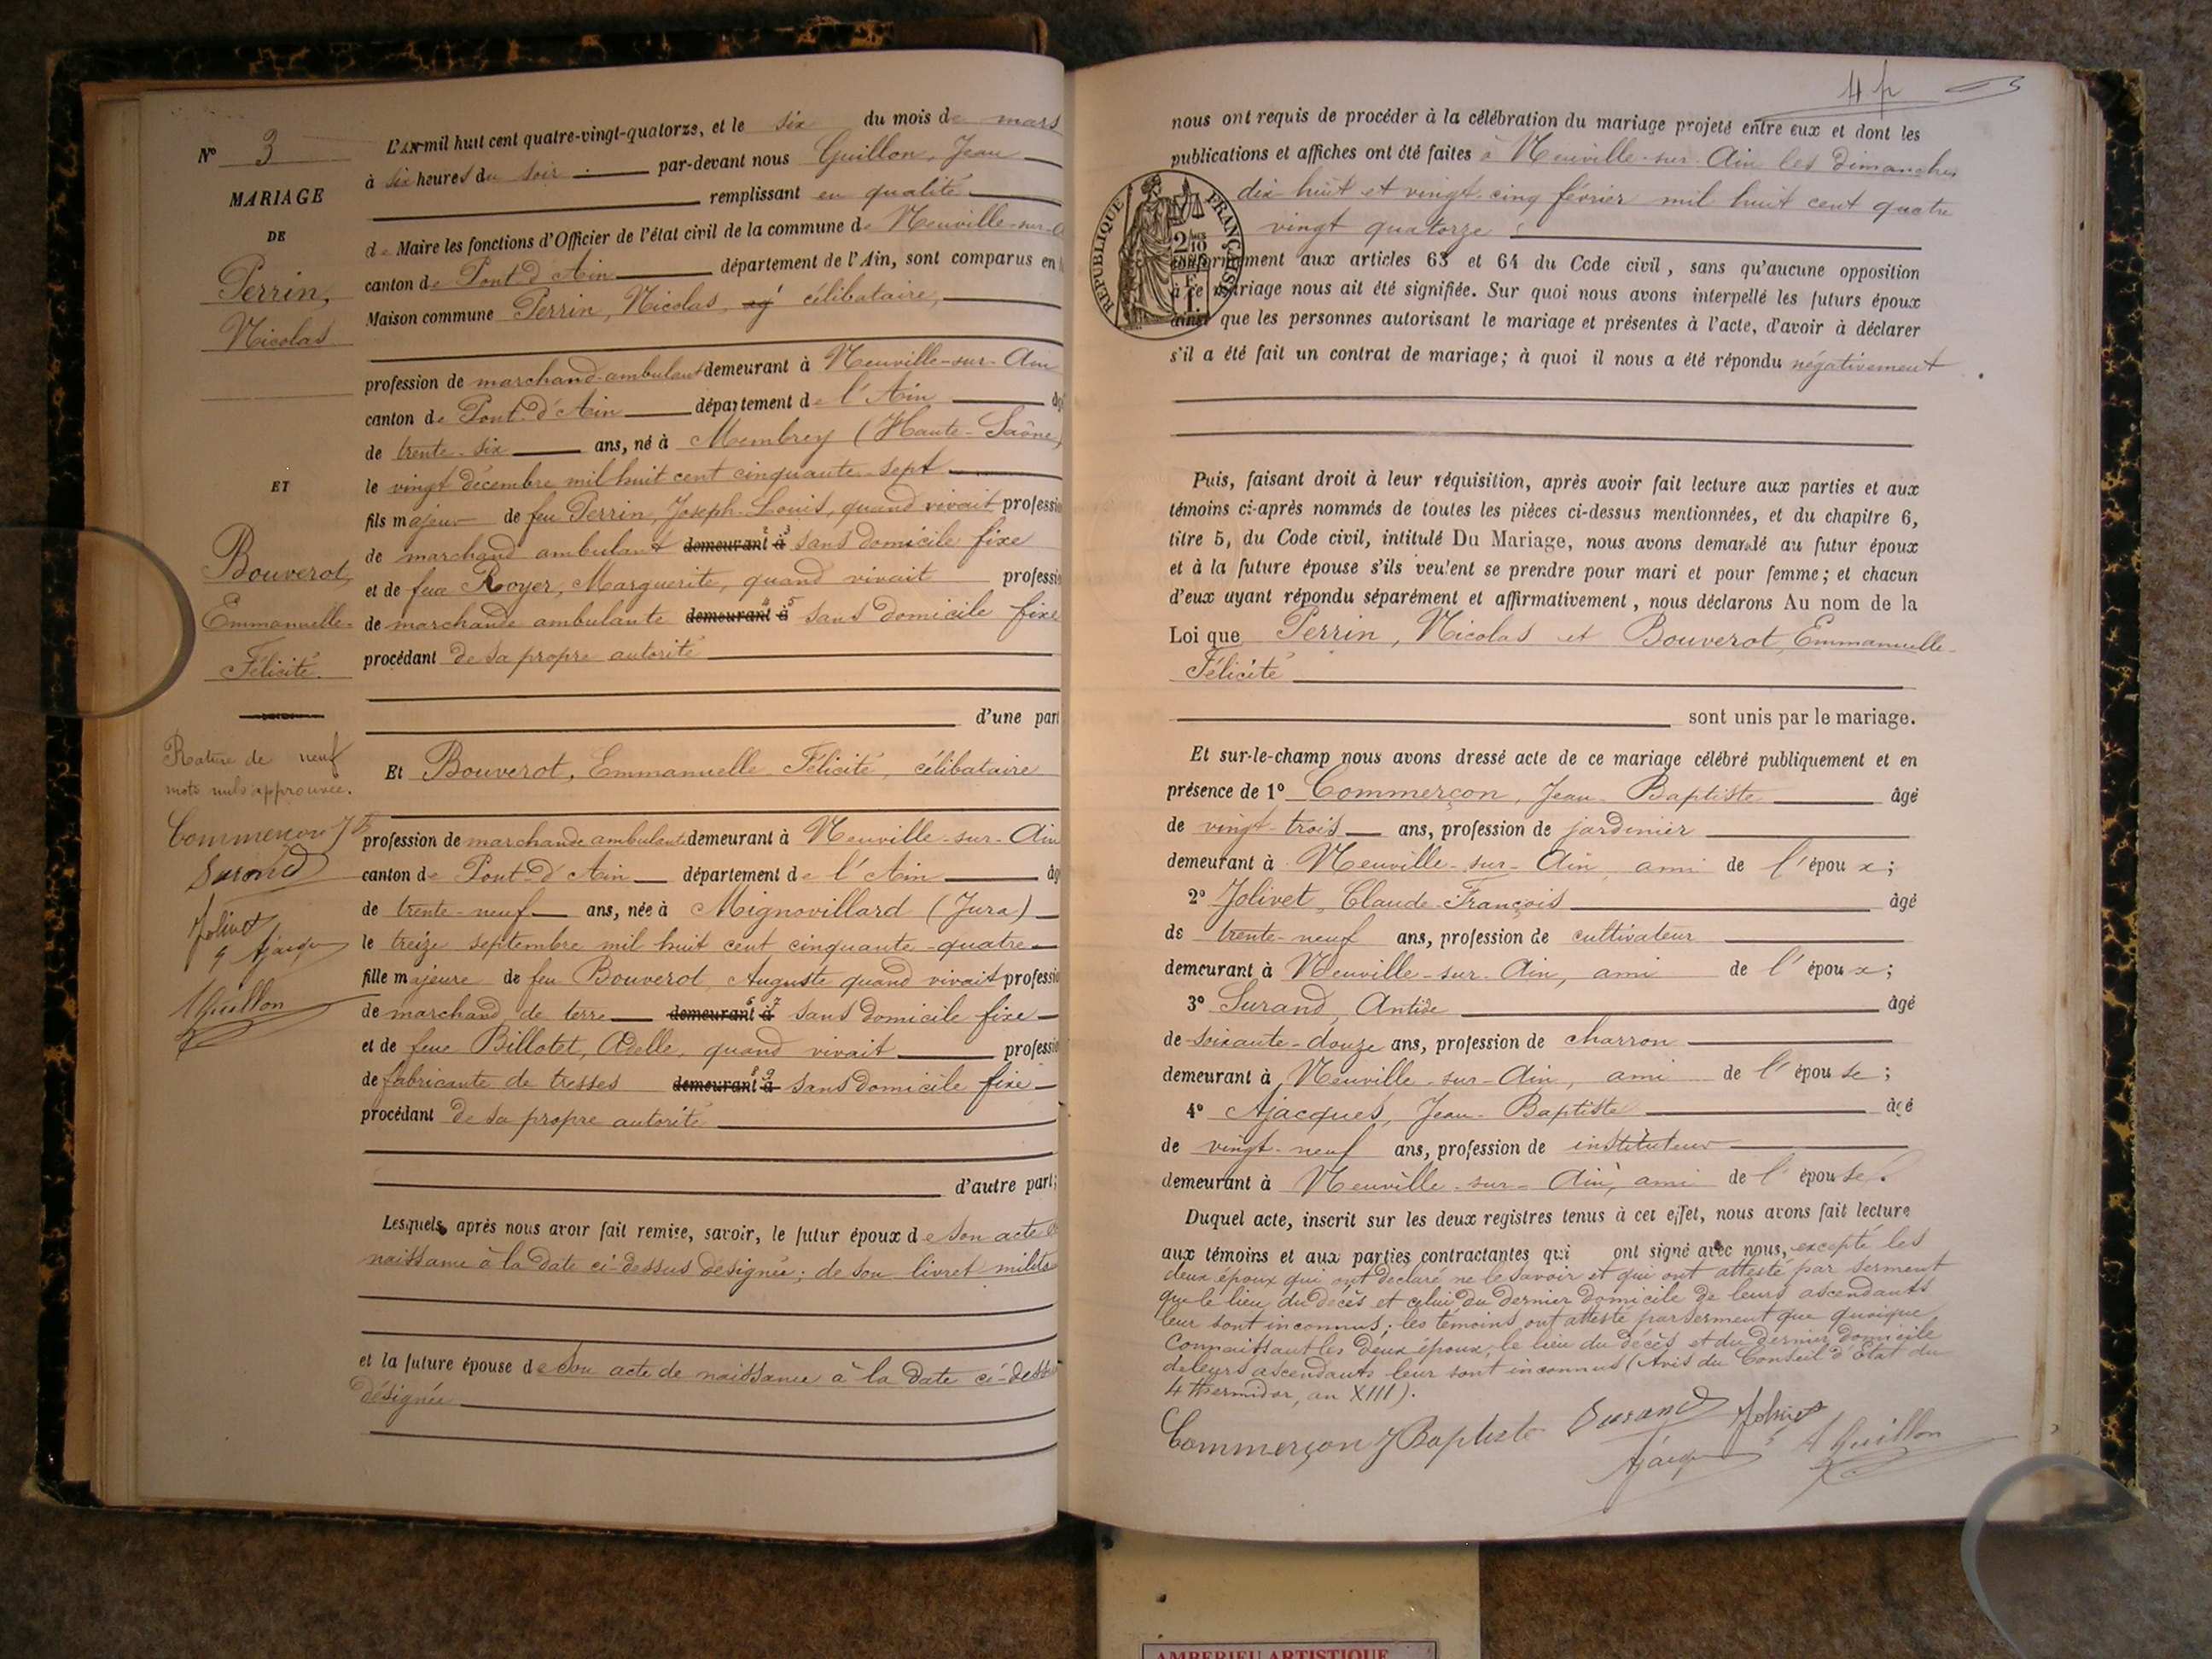 Nº 3
MARIAGE
DE
Perrin,
Nicolas
ET
Bouverot,
Emmanuelle-
Félicité.
Rature de neuf
mots nuls approuvée.
Commerçon J B
Surand
Jolivet
Ajacques
Guillon
L'AN mil huit cent quatre-vingt-quatorze, et le six du mois de mars
à six heures du soir par-devant nous Guillon, Jean
remplissant en qualité
de Maire les fonctions d'Officier de l'état civil de la commune de Neuville-sur-A
canton de Pont-d'Ain département de l'Ain, sont comparus en
Maison commune Perrin, Nicolas, célibataire,
profession de marchand-ambulant demeurant à Neuville-sur-Ain
canton de Pont-d'Ain département de l'Ain âgé
de trente-six ans, né à Membrey (Haute-Saône)
le vingt décembre mil huit cent cinquante-sept
fils majeur de feu Perrin, Joseph-Louis, quand vivait professio
de marchand ambulant demeurant 2 à 3 sans domicile fixe
et de feue Royer, Marguerite, quand vivait professio
de marchande ambulante demeurant 4 à 5 sans domicile fixe
procédant de sa propre autorité
d'une part
Et Bouverot, Emmanuelle Félicité, célibataire
profession de marchande ambulante demeurant à Neuville-sur-Ain
canton de Pont-d'Ain département de l'Ain âg
de trente-neuf ans, née à Mignovillard (Jura)
le treize septembre mil huit cent cinquante-quatre
fille majeure de feu Bouverot, Auguste quand vivait professio
de marchand de terre demeurant 6 à 7 sans domicile fixe
et de feue Billotet, Adelle, quand vivait professio
de fabricante de tresses demeurant 8 à 9 sans domicile fixe
procédant de sa propre autorité
d'autre part;
Lesquels, après nous avoir fait remise, savoir, le futur époux de son acte de
naissance à la date ci-dessus désignée; de son livret milita
et la future épouse de son acte de naissance à la date ci-dessus
désignée
4 p
nous ont requis de procéder à la célébration du mariage projeté entre eux et dont les
publications et affiches ont été faites à Neuville-sur-Ain les dimanches
dix-huit et vingt-cinq février mil huit cent quatre
vingt quatorze
RÉPUBLIQUE FRANÇAISE
conformément aux articles 63 et 64 du Code civil, sans qu'aucune opposition
à ce mariage nous ait été signifiée. Sur quoi nous avons interpellé les futurs époux
ainsi que les personnes autorisant le mariage et présentes à l'acte, d'avoir à déclarer
s'il a été fait un contrat de mariage; à quoi il nous a été répondu négativement
Puis, faisant droit à leur réquisition, après avoir fait lecture aux parties et aux
témoins ci-après nommés de toutes les pièces ci-dessus mentionnées, et du chapitre 6,
titre 5, du Code civil, intitulé Du Mariage, nous avons demandé au futur époux
et à la future épouse s'ils veulent se prendre pour mari et pour femme; et chacun
d'eux ayant répondu séparément et affirmativement, nous déclarons Au nom de la
Loi que Perrin, Nicolas et Bouverot, Emmanuelle-
Félicité
sont unis par le mariage.
Et sur-le-champ nous avons dressé acte de ce mariage célébré publiquement et en
présence de 1º Commerçon, Jean-Baptiste âgé
de vingt-trois ans, profession de jardinier
demeurant à Neuville-sur-Ain, ami de l'époux;
2º Jolivet, Claude-François âgé
de trente-neuf ans, profession de cultivateur
demeurant à Neuville-sur-Ain, ami de l'époux;
3º Surand, Antide âgé
de soixante-douze ans, profession de charron
demeurant à Neuville-sur-Ain, ami de l'épouse;
4º Ajacques, Jean-Baptiste âgé
de vingt-neuf ans, profession de instituteur
demeurant à Neuville-sur-Ain, ami de l'épouse.
Duquel acte, inscrit sur les deux registres tenus à cet effet, nous avons fait lecture
aux témoins et aux parties contractantes qui ont signé avec nous, excepté les
deux époux qui ont déclaré ne le savoir et qui ont attesté par serment
que le lieu du décès et celui du dernier domicile de leurs ascendants
leur sont inconnus; les témoins ont attesté par serment que quoique
connaissant les deux époux, le lieu du décès et du dernier domicile
de leurs ascendants leur sont inconnus (Avis du Conseil d'État du
4 thermidor, an XIII).
Commerçon J Baptiste Surand Jolivet
Ajacques Guillon
AMBERIEU ARTISTIQUE